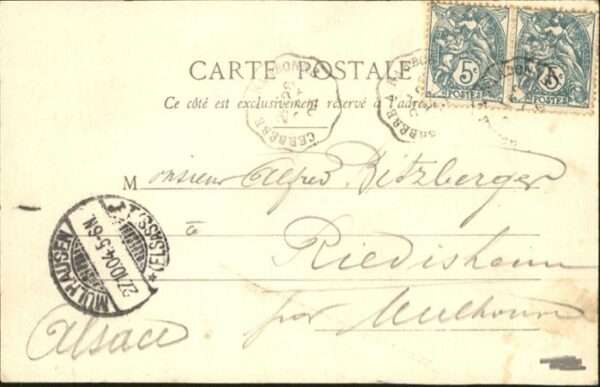 CARTE POSTALE
Ce côté est exclusivement réservé à l'adresse
5c POSTES
5c POSTES
CERBÈRE A NARBONNE
CERBÈRE A NARBONNE
Monsieur Alfred Ritzberger
à
Riedisheim
par Mulhouse
Alsace
MÜLHAUSEN
27.10.04.5-6N.
* (ELSASS) 1